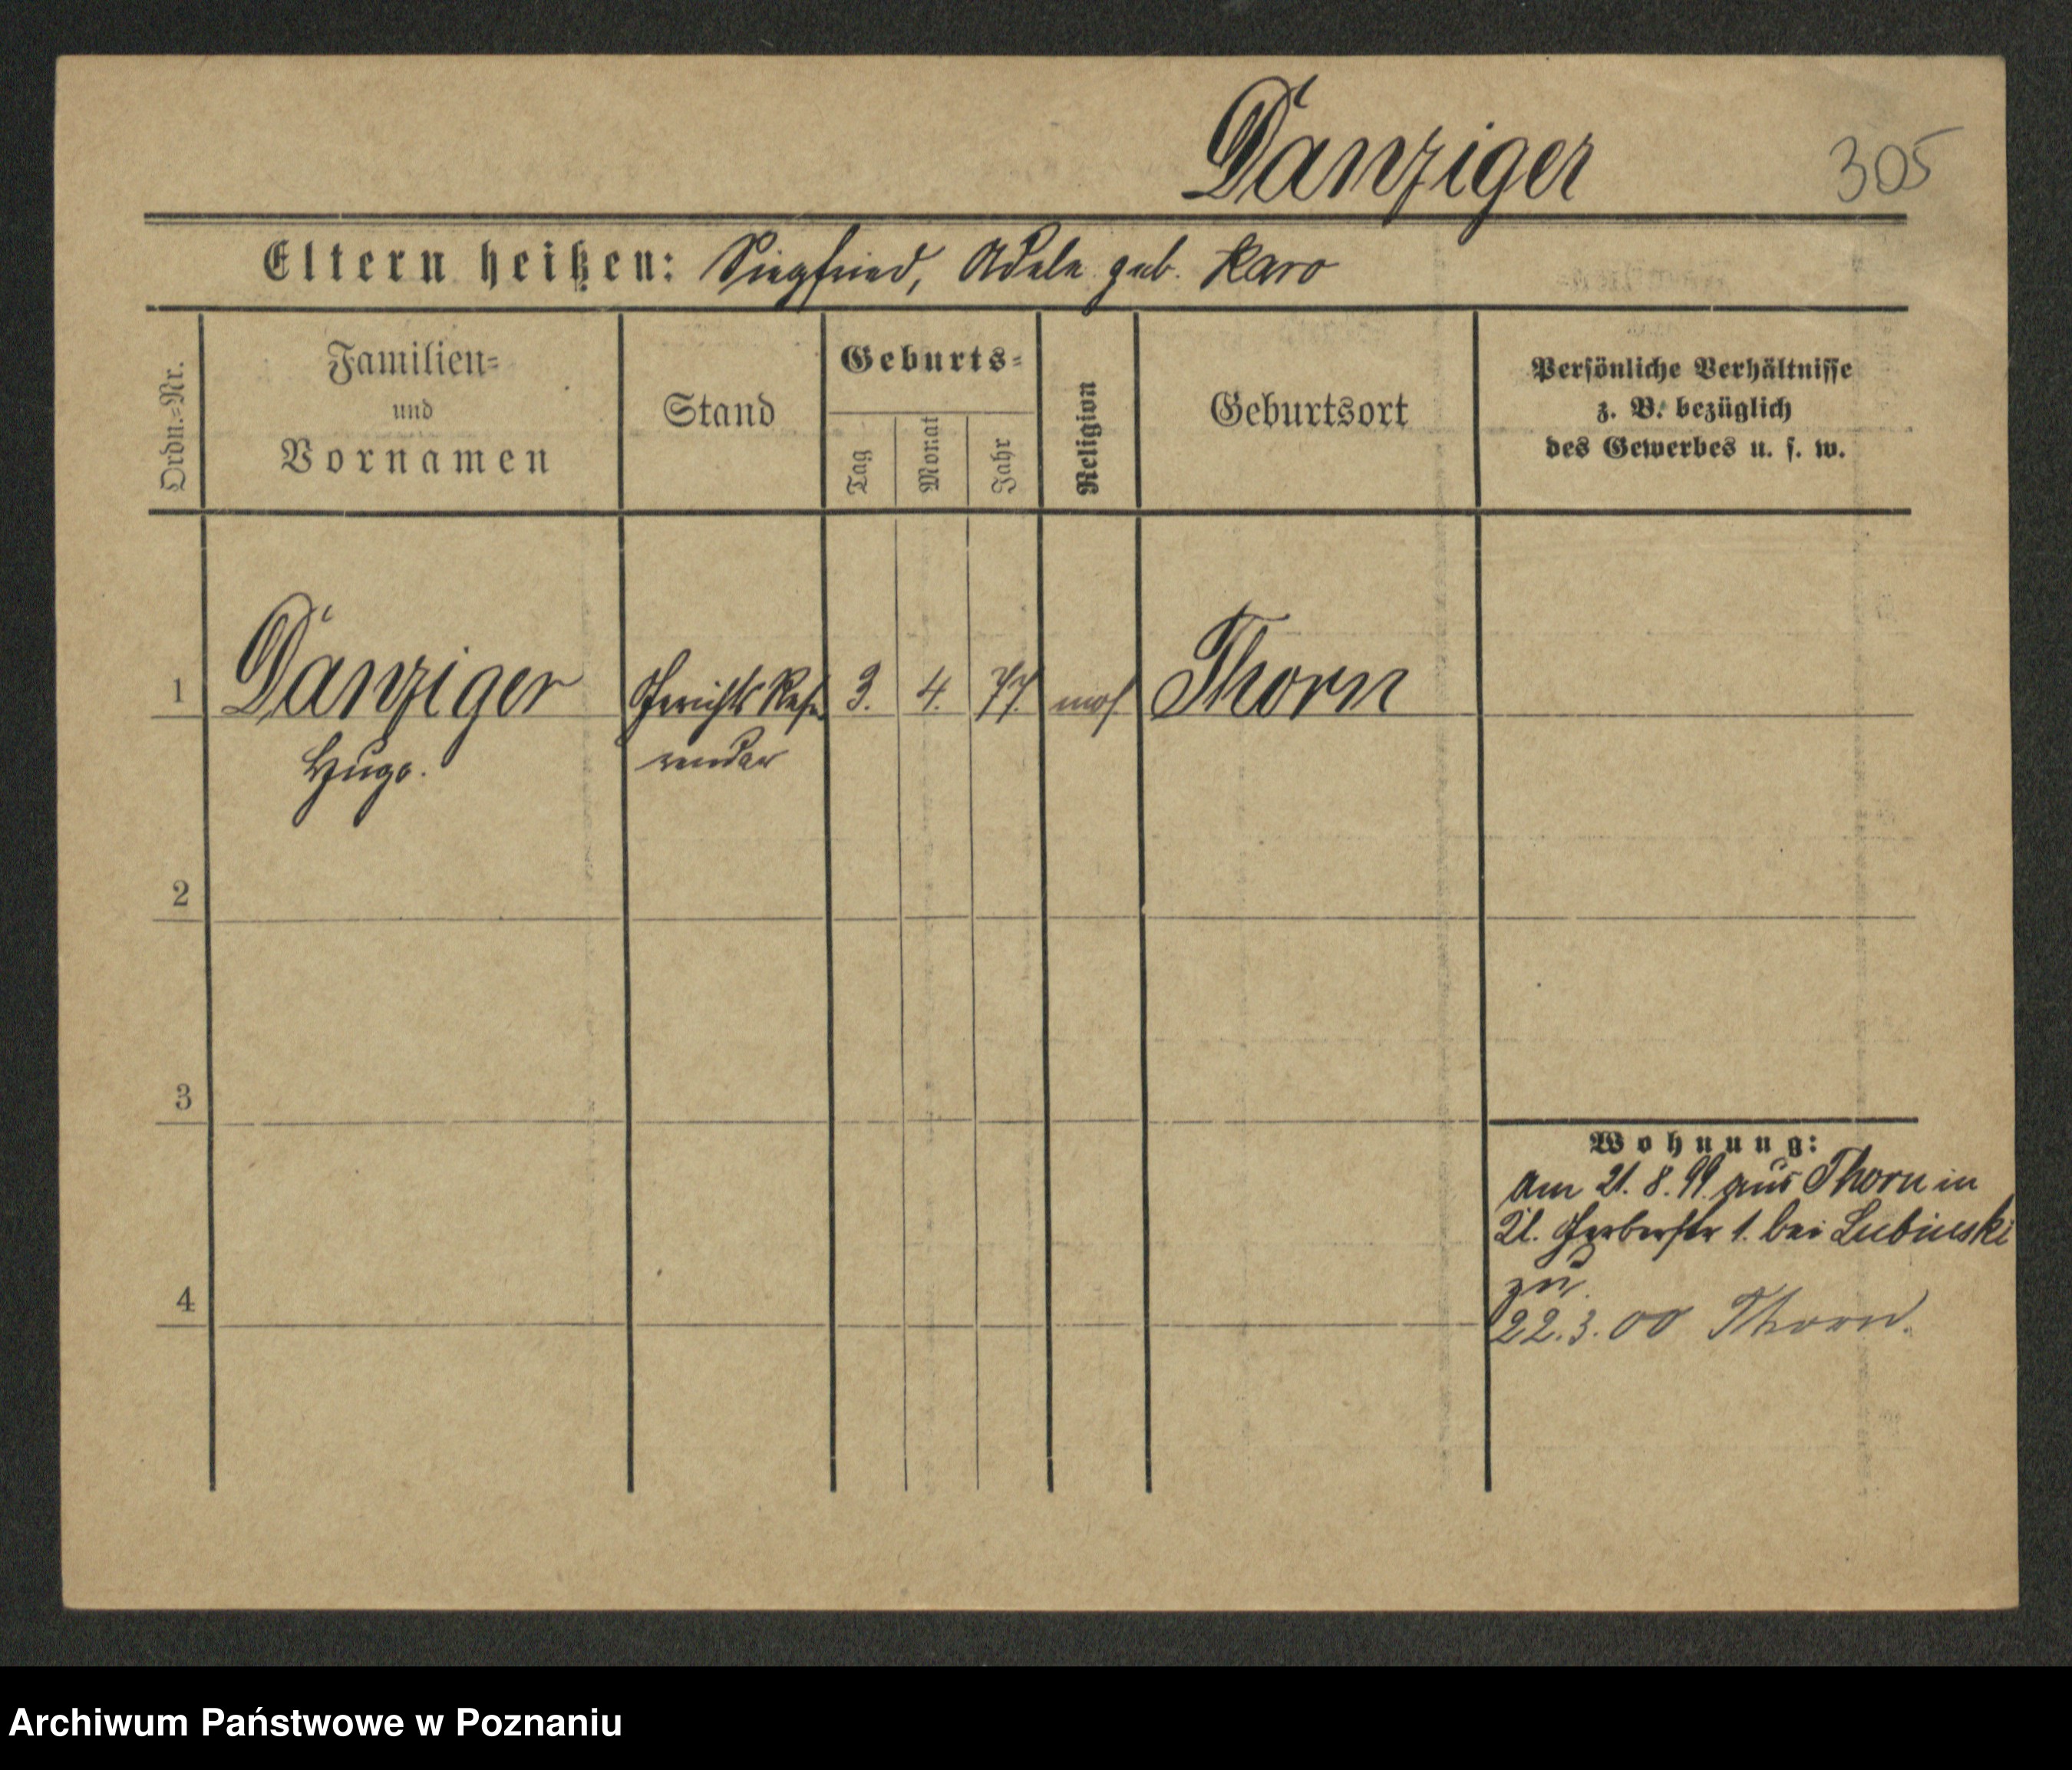 Danziger
305
Eltern heißen: Siegfried, Adele geb. Karo
Ordn.=Nr.
Familien=
und
Vornamen
Stand
Geburts=
Tag
Monat
Jahr
Religion
Geburtsort
Persönliche Verhältnisse
z. B. bezüglich
des Gewerbes u. s. w.
1 Danziger Gerichts Refe 3. 4. 77. mos. Thorn
Hugo. rendar
2
3
Wohnung:
Am 21. 8. 99. aus Thorn in
Gerberstr 1. bei Lubinski
zu.
4
22.3.00 Thorn.
Archiwum Państwowe w Poznaniu